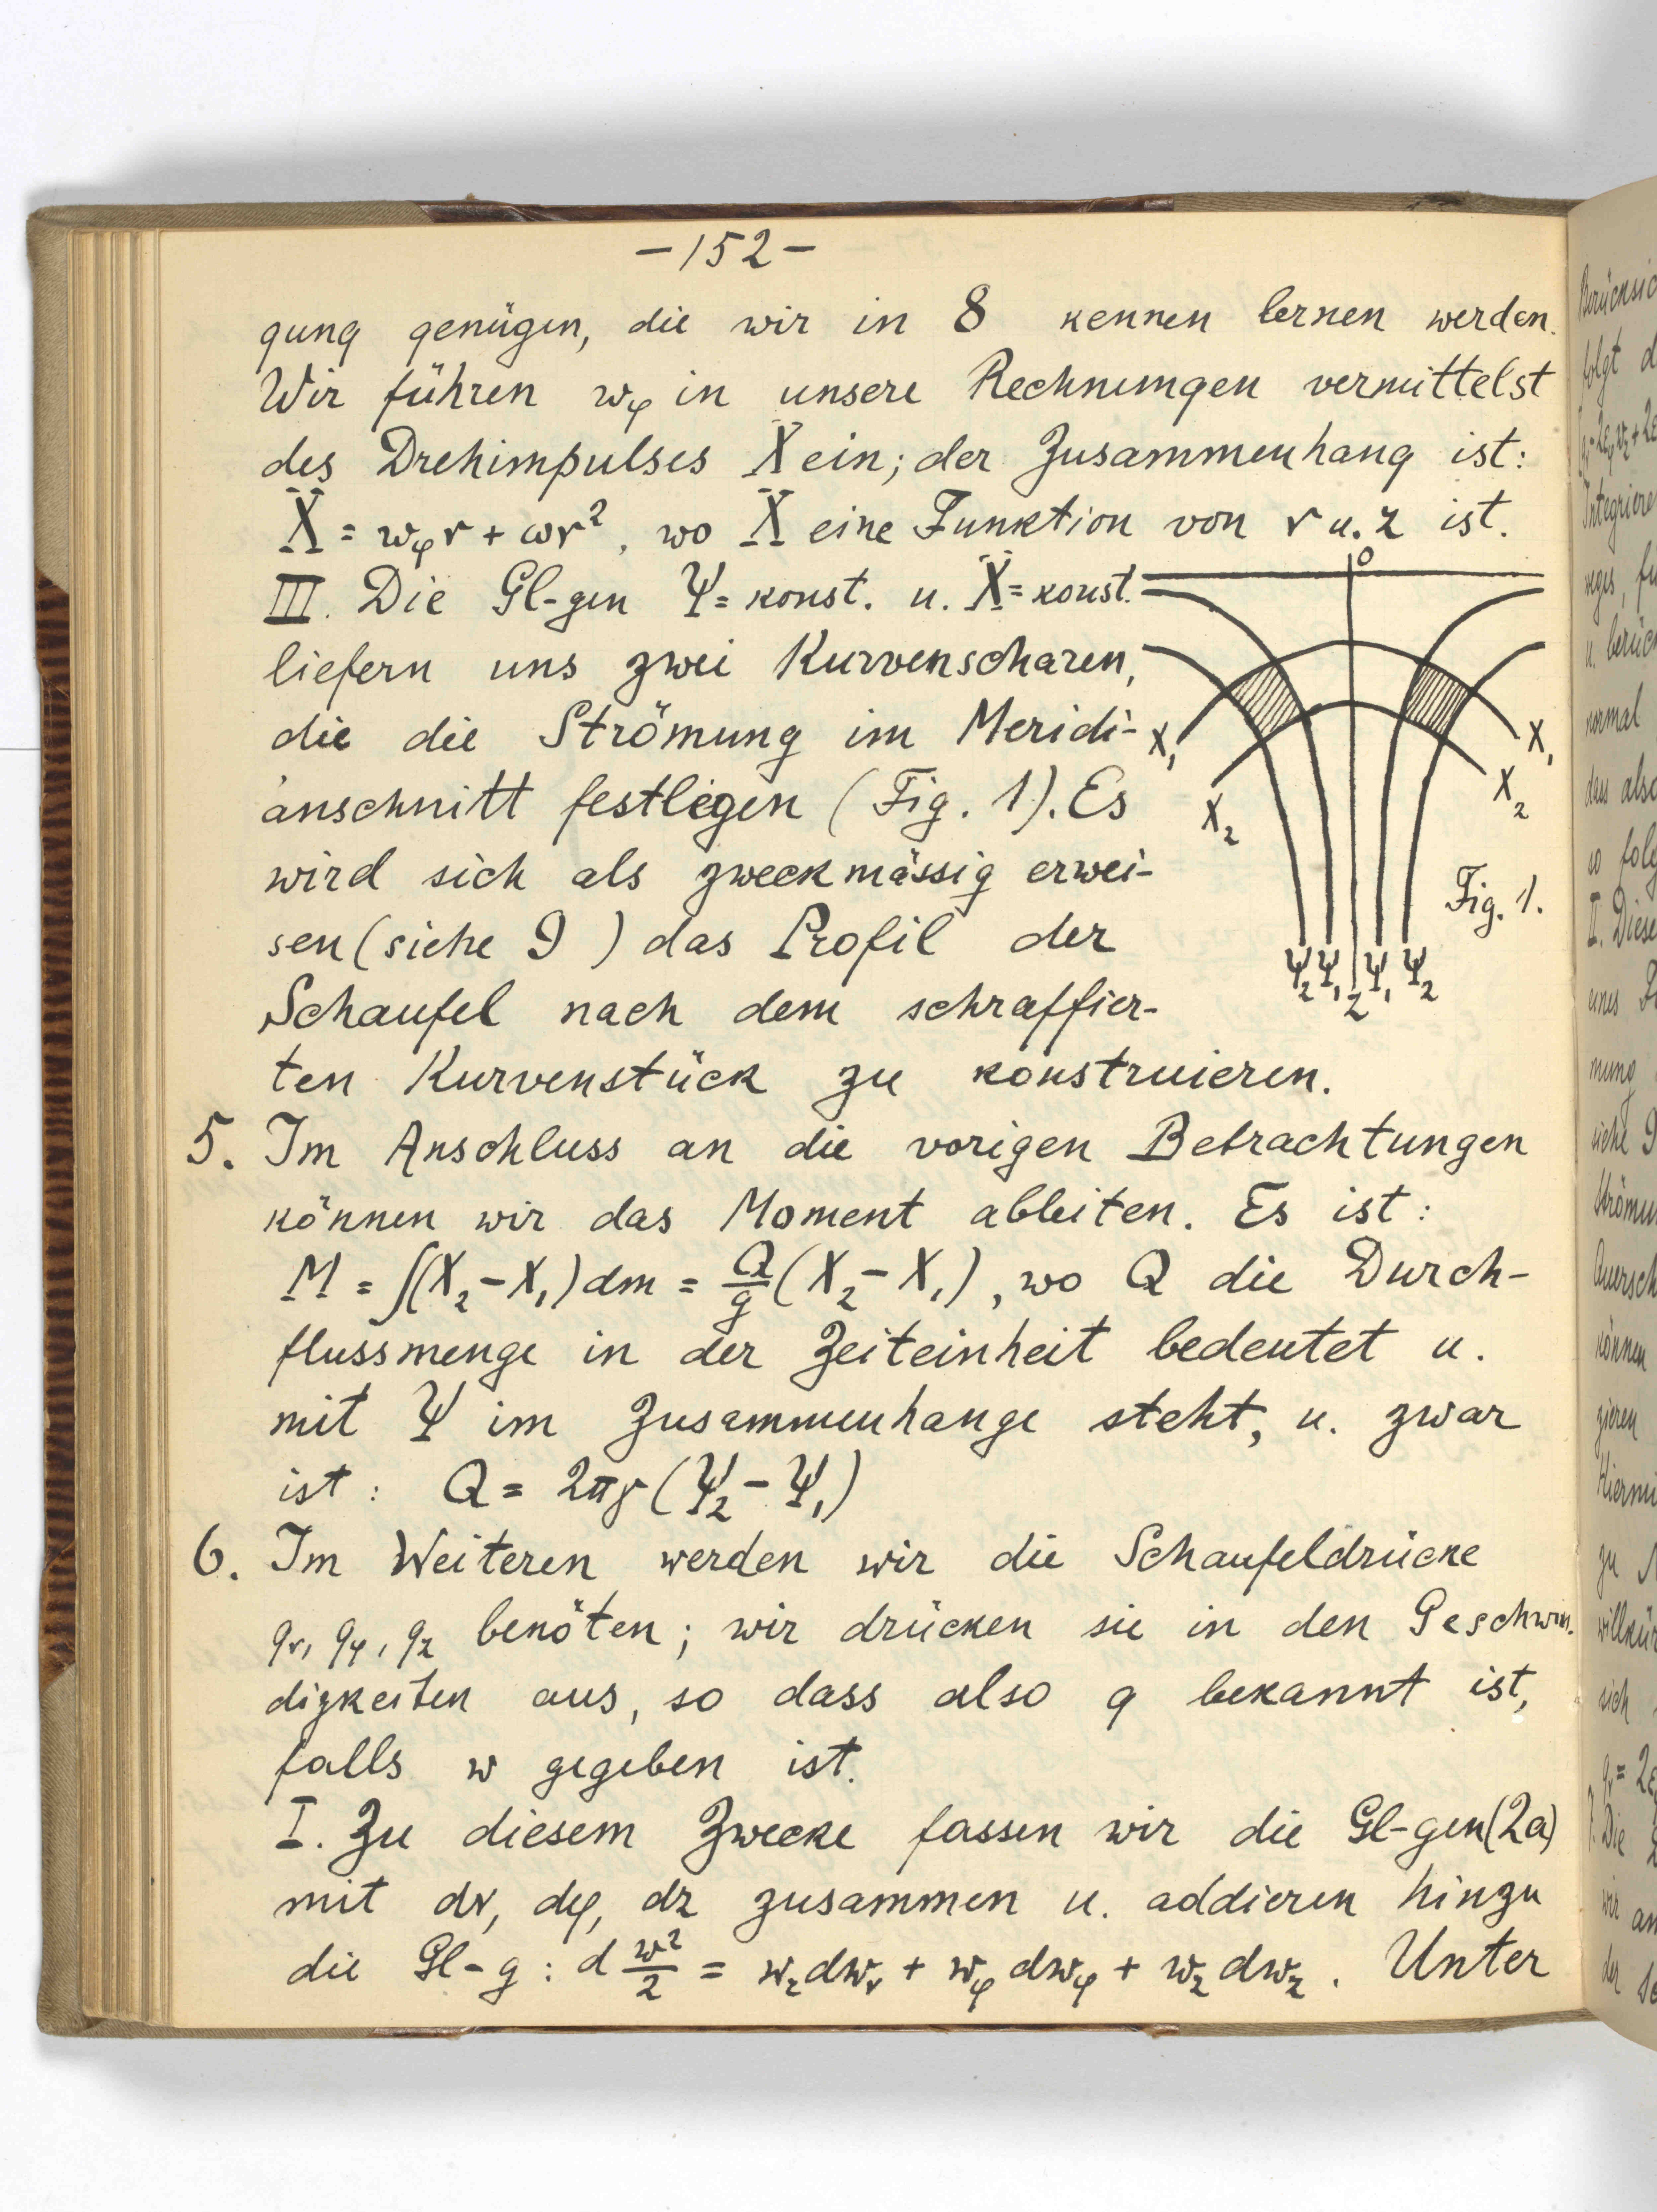 -152-
gung genügen, die wir in 8 kennen lernen werden.
Wir führen wφ in unsere Rechnungen vermittelst
des Drehimpulses X ein; der Zusammenhang ist:
X = wφr + ωr², wo X eine Funktion von r u. z ist.
III. Die Gl-gen Ψ = konst. u. X = konst.
liefern uns zwei Kurvenscharen,
die die Strömung im Meridi-
anschnitt festlegen (Fig. 1). Es
wird sich als zweckmässig erwei-
sen (siehe 9 ) das Profil der
Schaufel nach dem schraffier-
ten Kurvenstück zu konstruieren.
0
X₁ X₁
X₂ X₂
Fig. 1.
Ψ₂ Ψ₁ z Ψ₁ Ψ₂
5. Im Anschluss an die vorigen Betrachtungen
können wir das Moment ableiten. Es ist:
M = ∫(X₂ - X₁) dm = Q/g (X₂ - X₁), wo Q die Durch-
flussmenge in der Zeiteinheit bedeutet u.
mit Ψ im Zusammenhange steht, u. zwar
ist: Q = 2πγ (Ψ₂ - Ψ₁)
6. Im Weiteren werden wir die Schaufeldrücke
qr, qφ, qz benöten; wir drücken sie in den Geschwin.
digkeiten aus, so dass also q bekannt ist,
falls w gegeben ist.
I. Zu diesem Zwecke fassen wir die Gl-gen (2a)
mit dr, dφ, dz zusammen u. addieren hinzu
die Gl-g: d w²/2 = wr dwr + wφ dwφ + wz dwz. Unter